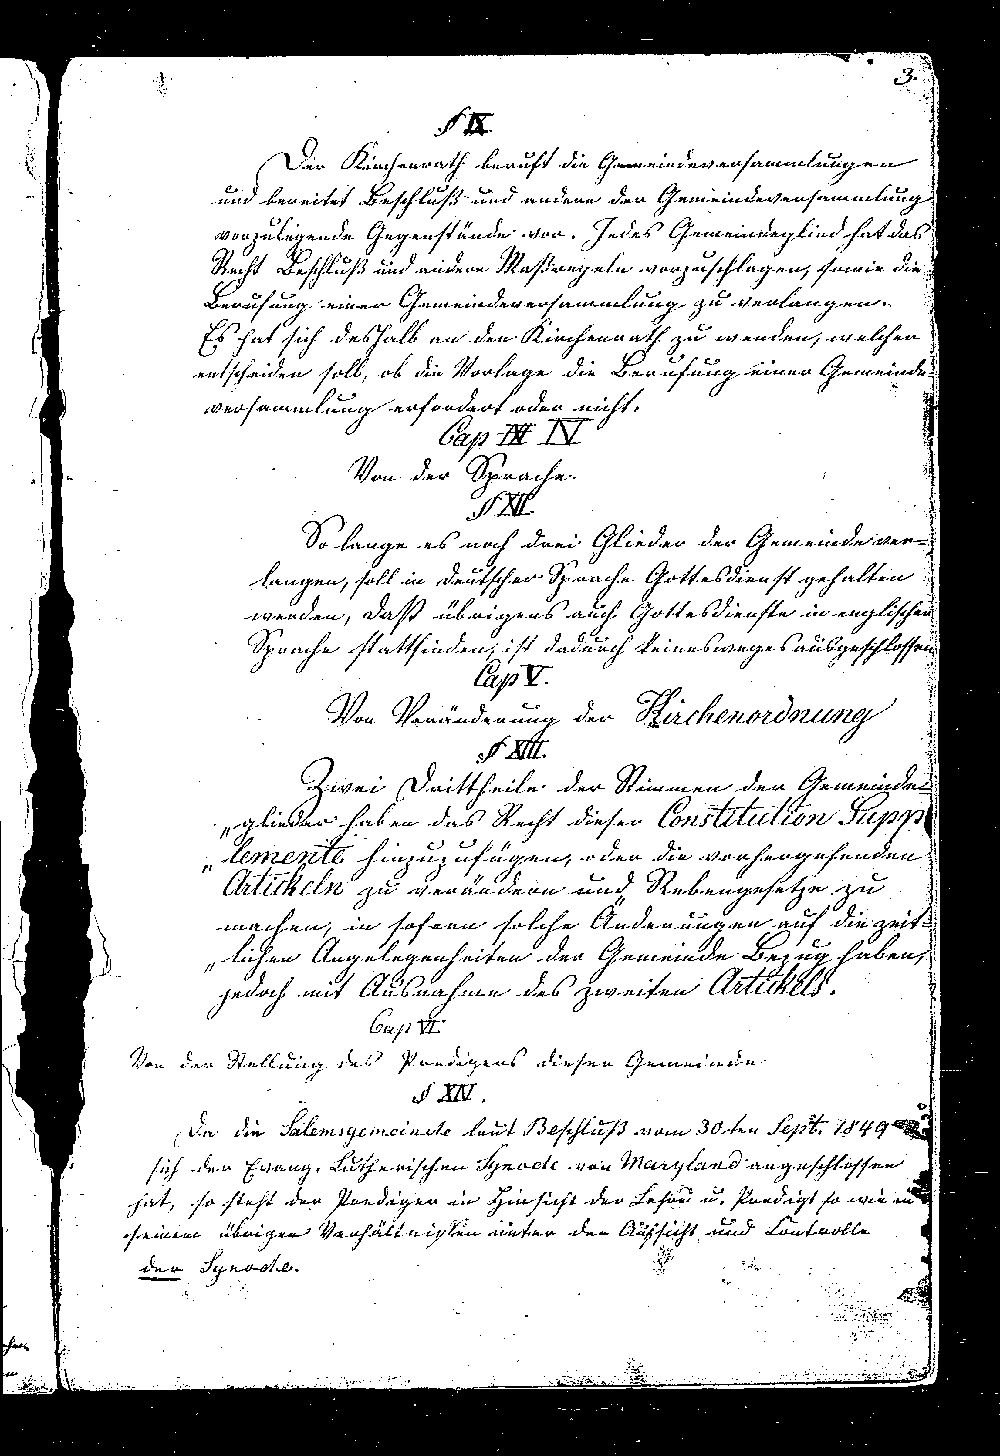 3.
§ IX.
Der Kirchenrath beruft die Gemeindeversammlungen
und bereitet Beschluß und andere der Gemeindeversammlung
vorzulegende Gegenstände vor. Jedes Gemeindeglied hat das
Recht Beschluß und andere Maßregeln vorzuschlagen, sowie die
Berufung einer Gemeindeversammlung zu verlangen.
Es hat sich deshalb an den Kirchenrath zu wenden, welcher
entscheiden soll, ob die Vorlage die Berufung einer Gemeinde-
versammlung erfordert oder nicht.
Cap IV
Von der Sprache.
§ XII.
So lange es noch drei Glieder der Gemeinde ver-
langen, soll in deutscher Sprache Gottesdienst gehalten
werden, daß übrigens auch Gottesdienste in englischer
Sprache stattfinden, ist dadurch keinesweges ausgeschlossen
Cap V.
Von Veränderung der Kirchenordnung
§ XIII.
Zwei Drittheile der Stimmen der Gemeinde-
„glieder haben das Recht dieser Constitution Supp
„lemente hinzuzufügen, oder die vorhergehenden
Artikeln zu verändern und Nebengesetze zu
machen, in sofern solche Änderungen auf die zeit-
„lichen Angelegenheiten der Gemeinde Bezug haben,
jedoch mit Ausnahme des zweiten Artickels.
Cap VI
Von der Stellung des Predigers dieser Gemeinde
§ XIV.
Da die Salemsgemeinde laut Beschluß vom 30ten Sept. 1849
sich der Evang. Lutherischen Synode von Maryland angeschlossen
hat, so steht der Prediger in Hinsicht der Lehre u. Predigt so wie in
seinem übrigen Verhältnissen unter der Aufsicht und Controlle
der Synode.